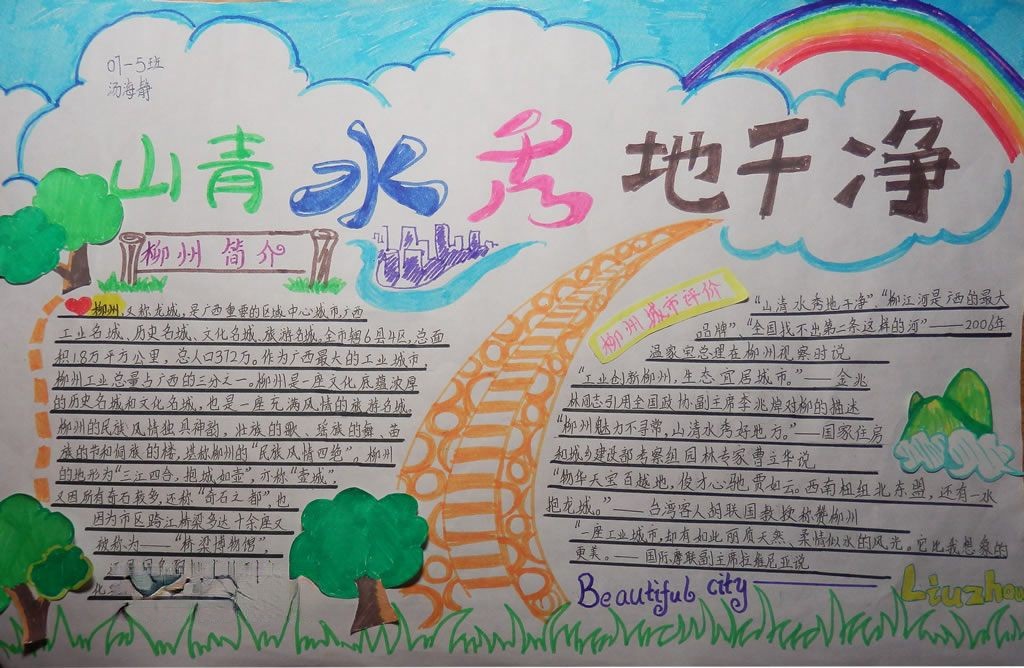 07-5班
汤海静
山青水秀地干净
柳州简介
柳州,又称龙城,是广西重要的区域中心城市,广西
工业名城、历史名城、文化名城、旅游名城,全市辖6县4区,总面
积1.8万平方公里,总人口372万。作为广西最大的工业城市,
柳州工业总量占广西的三分之一。柳州是一座文化底蕴浓厚
的历史名城和文化名城,也是一座充满风情的旅游名城。
柳州的民族风情独具神韵,壮族的歌、瑶族的舞、苗
族的节和侗族的楼,堪称柳州的“民族风情四绝”。柳州
的地形为“三江四合,抱城如壶”,亦称“壶城”,
又因所有奇石较多,还称“奇石之都”,也
因为市区跨江桥梁多达十余座又
被称为——“桥梁博物馆”,
化
柳州城市评价
“山清水秀地干净”,“柳江河是广西的最大
品牌”,“全国找不出第二条这样的河”——2006年
温家宝总理在柳州视察时说
“工业创新柳州,生态宜居城市。”——金兆
林同志引用全国政协副主席李兆焯对柳的描述
“柳州魅力不寻常,山清水秀好地方。”——国家住房
和城乡建设部考察组园林专家曹立华说
“物华天宝百越地,俊才心驰贾如云。西南枢纽北东盟,还有一水
抱龙城。”——台湾客人胡联国教授称赞柳州
“一座工业城市,却有如此丽质天然、柔情似水的风光。它比我想象的
更美。——国际摩联副主席拉维尼亚说
Beautiful city
Liuzhou